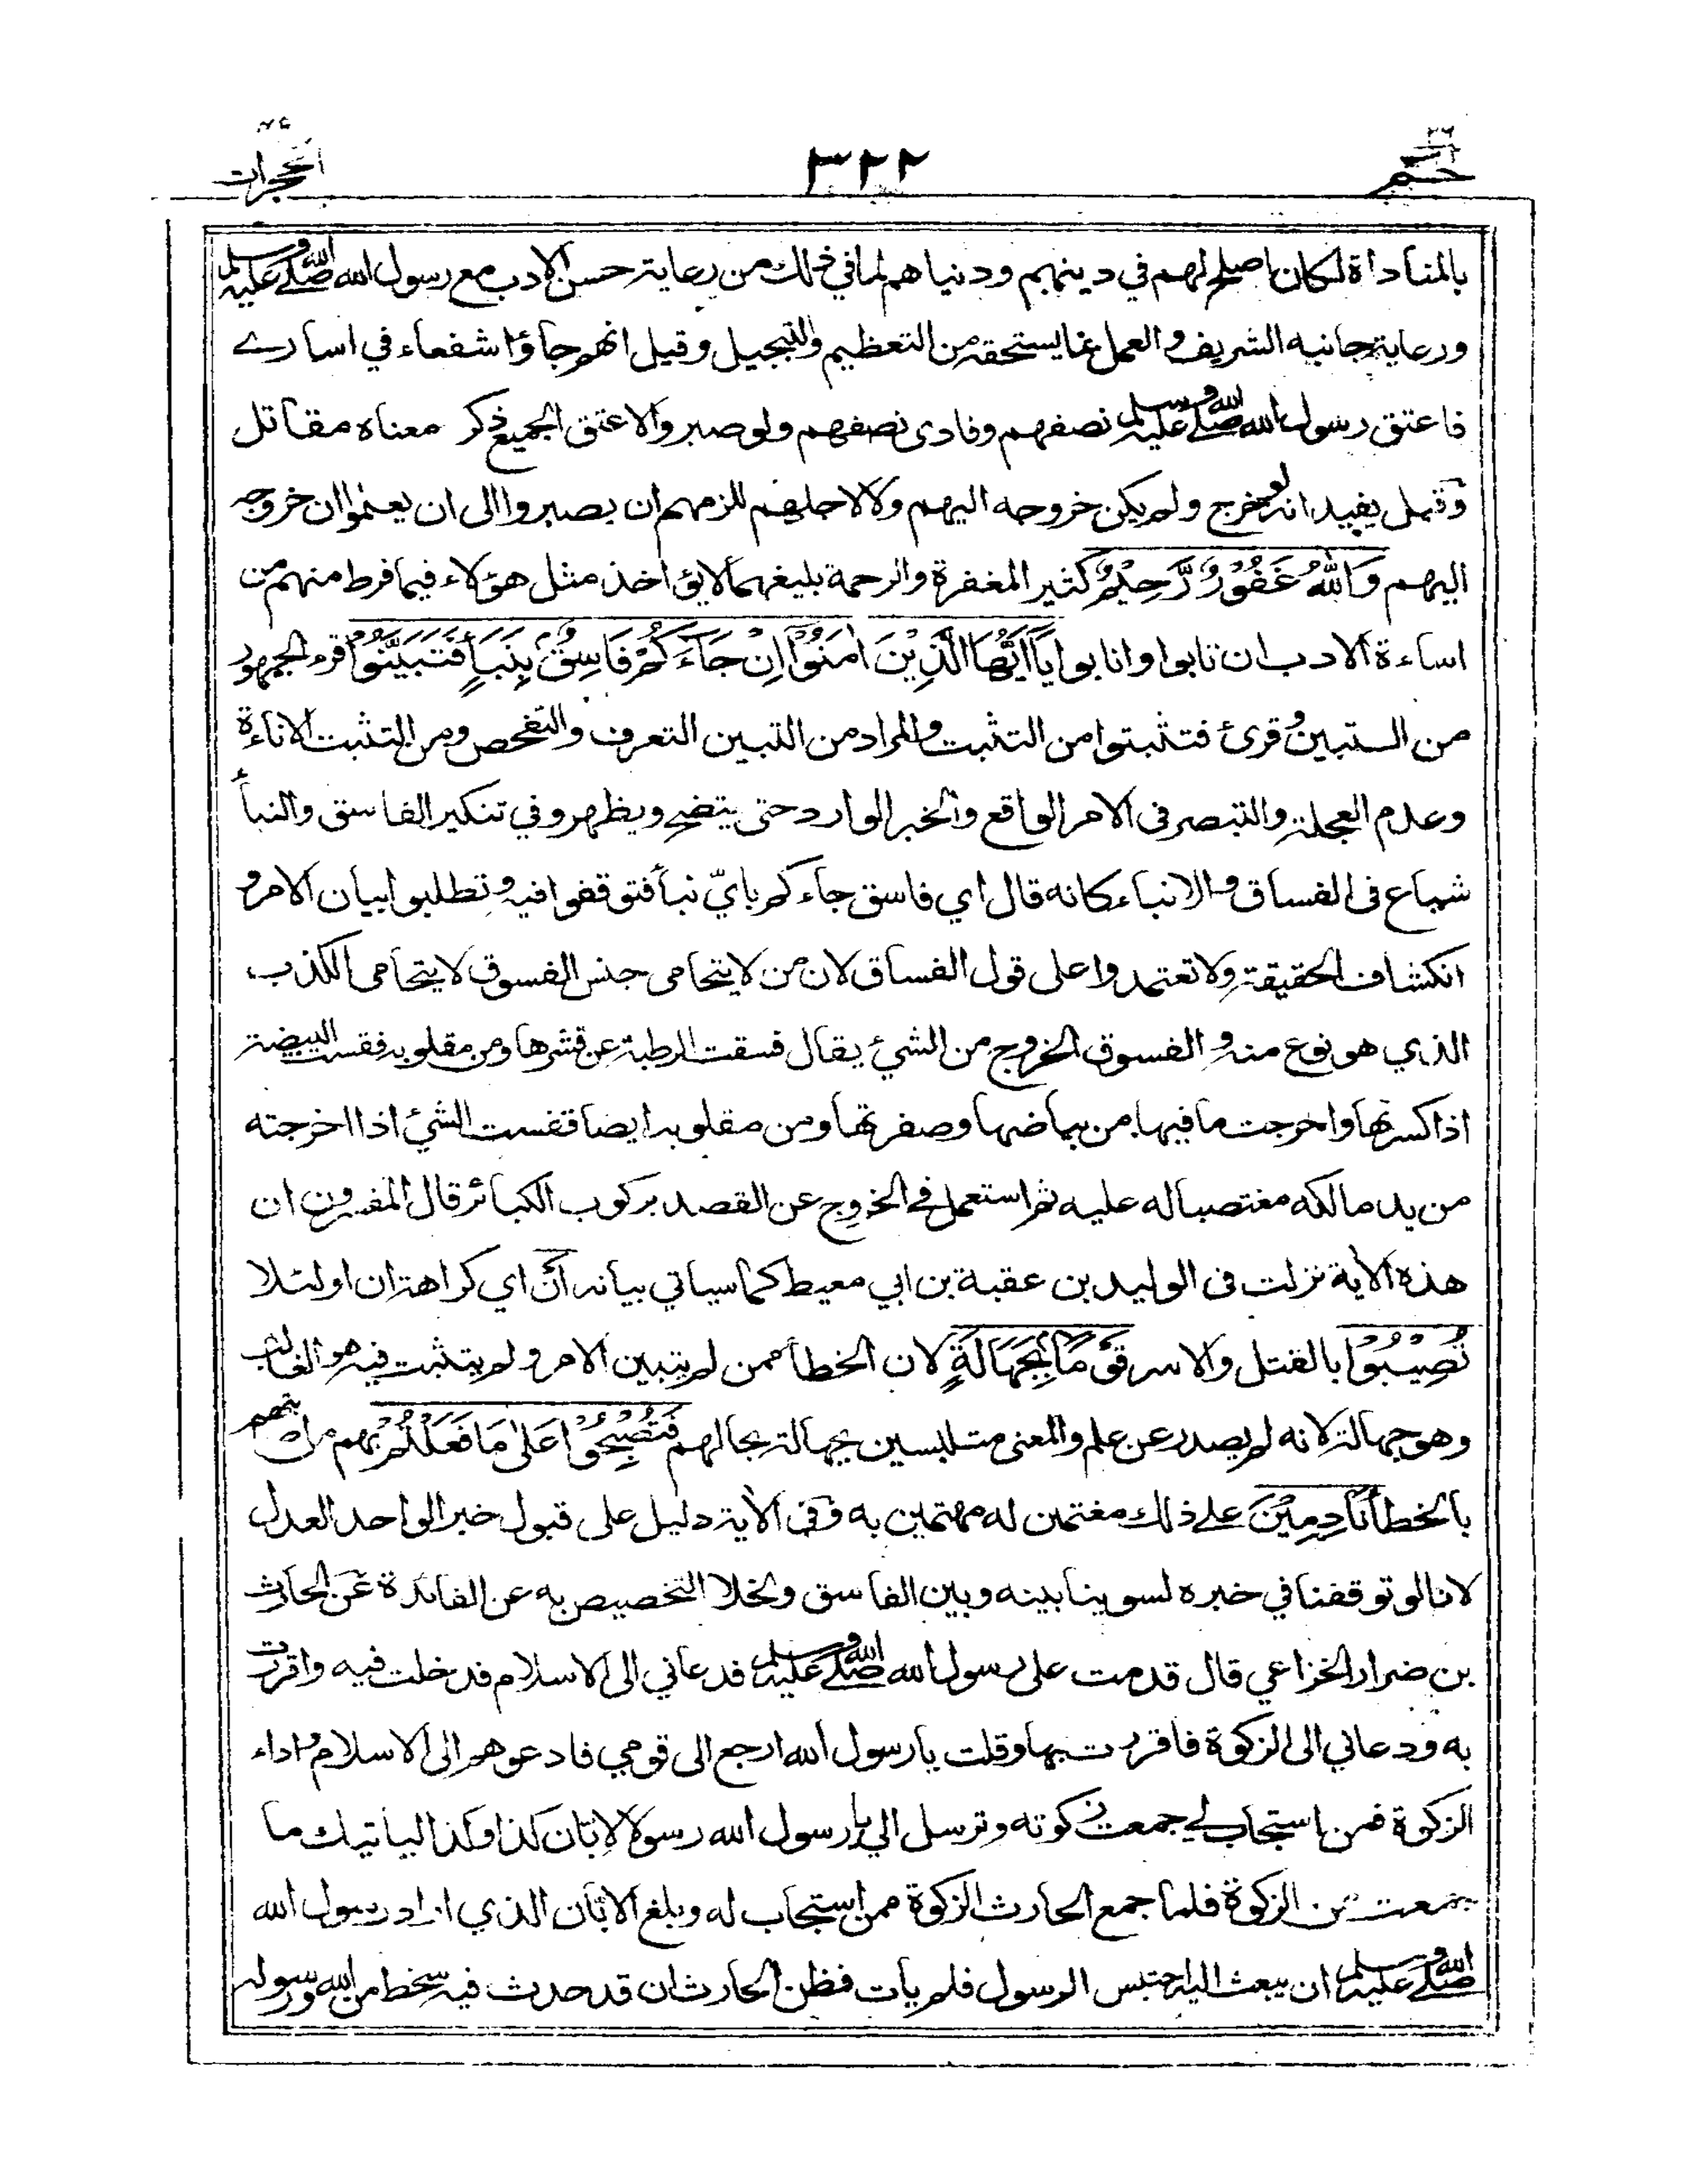 حم ٢٦
٣٢٢
الحجرات ٤٩
بالمناداة لكان اصلح لهم في دينهم ودنياهم لما في ذلك من رعاية حسن الادب مع رسول الله صلى الله عليه وسلم
ورعاية جانبه الشريف والعمل بما يستحقه من التعظيم والتبجيل وقيل انهم جاؤا شفعاء في اسارے
فاعتق رسول الله صلى الله عليه وسلم نصفهم وفادى نصفهم ولو صبروا لاعتق الجميع ذكر معناه مقاتل
وقيل يفيد انه لو خرج ولم يكن خروجه اليهم ولالاجلهم للزمهم ان يصبروا الى ان يعلموا ان خروجه
اليهم وَاللّٰهُ غَفُوْرٌ رَّحِيْمٌ كثير المغفرة والرحمة بليغهما لا يؤاخذ مثل هؤلاء فيما فرط منهم من
اساءة الادب ان تابوا وانابوا يَآاَيُّهَا الَّذِيْنَ اٰمَنُوْٓا اِنْ جَآءَكُمْ فَاسِقٌ بِنَبَأٍ فَتَبَيَّنُوْٓا قرء الجمهور
من التبين وقرئ فتثبتوا من التثبت والمراد من التبين التعرف والتفحص ومن التثبت الاناءة
وعدم العجلة والتبصر فى الامر الواقع والخبر الوارد حتى يتضح ويظهر وفي تنكير الفاسق والنبأ
شياع فى الفساق والانباء كانه قال اي فاسق جاءكم بايّ نبأ فتوقفوا فيه وتطلبوا بيان الامر و
انكشاف الحقيقة ولا تعتمدوا على قول الفساق لان من لا يتحامى جنس الفسوق لا يتحامى الكذب
الذي هو نوع منه والفسوق الخروج من الشئ يقال فسقت الرطبة عن قشرها ومن مقلوبه فقست البيضة
اذا كسرتها واخرجت ما فيها من بياضها وصفرتها ومن مقلوبه ايضا قفست الشئ اذا اخرجته
من يد مالكه مغتصبا له عليه ثم استعمل في الخروج عن القصد بركوب الكبائر قال المفسرون ان
هذه الاية نزلت فى الوليد بن عقبة بن ابي معيط كما سياتي بيانه اَنْ اي كراهة ان او لئلا
تُصِيْبُوْا بالقتل والاسر قَوْمًا بِجَهَالَةٍ لان الخطأ ممن لم يتبين الامر ولم يتثبت فيه هو الغالب
وهو جهالة لانه لم يصدر عن علم والمعنى متلبسين بجهالة بحالهم فَتُصْبِحُوْا عَلٰى مَا فَعَلْتُمْ بهم من
بالخطأ نَادِمِيْنَ على ذلك مغتمين له مهتمين به وفى الاية دليل على قبول خبر الواحد العدل
لانا لو توقفنا في خبره لسوينا بينه وبين الفاسق ولخلا التخصيص به عن الفائدة عن الحارث
بن ضرار الخزاعي قال قدمت على رسول الله صلى الله عليه وسلم فدعاني الى الاسلام فدخلت فيه واقررت
به ودعاني الى الزكوة فاقررت بها وقلت يا رسول الله ارجع الى قومي فادعوهم الى الاسلام واداء
الزكوة فمن استجاب لي جمعت زكوته وترسل الي يا رسول الله رسولا لابان كذا وكذا لياتيك ما
جمعت من الزكوة فلما جمع الحارث الزكوة ممن استجاب له وبلغ الابان الذي اراد رسول الله
صلى الله عليه وسلم ان يبعث اليه احتبس الرسول فلم يات فظن الحارث ان قد حدث فيه سخط من الله ورسوله